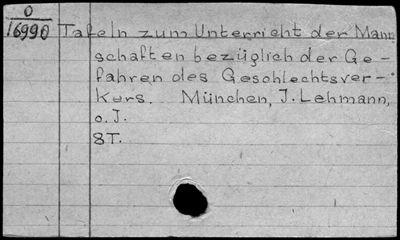 0
16990 Tafeln zum Unterricht der Mann
schaften bezüglich der Ge-
fahren des Geschlechtsver-
kers. München, J. Lehmann,
o. J.
8T.